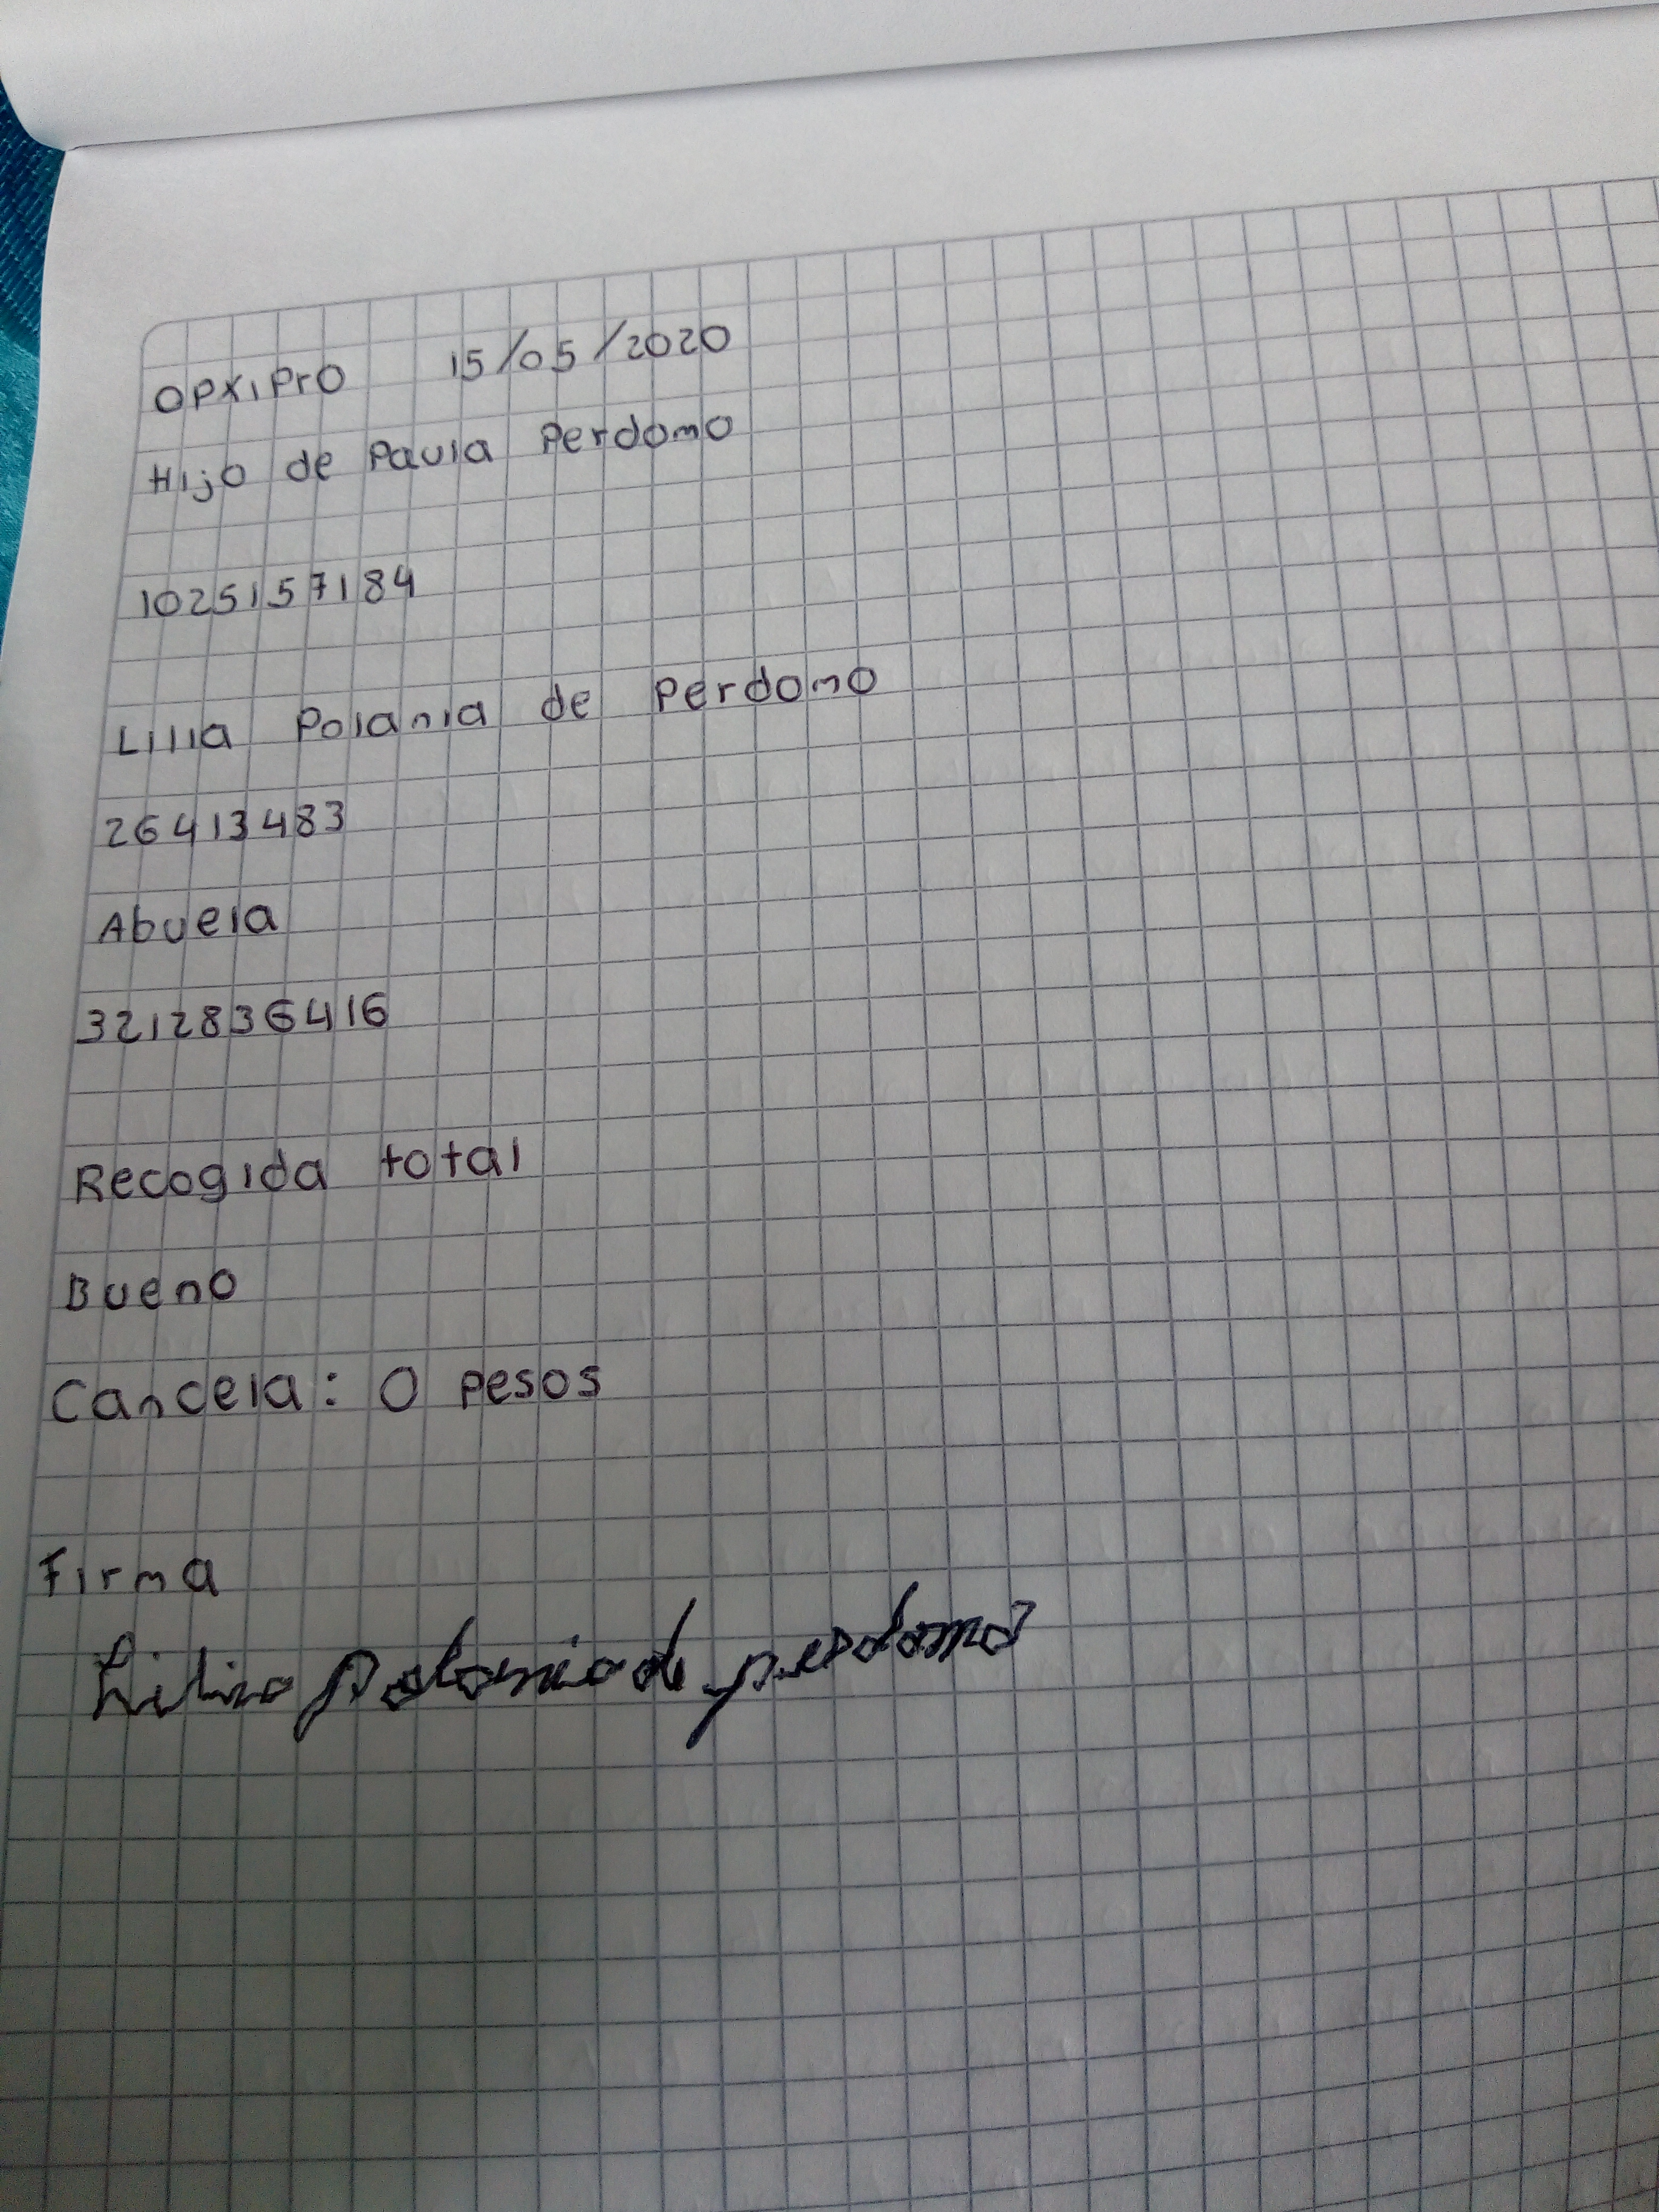 OPXIPrO 15/05/2020
Hijo de Paula Perdomo
1025157184
Lilia Polania de Perdomo
26413483
Abuela
3212836416
Recogida total
Bueno
Cancela: 0 pesos
Firma
Lilia Polania de perdomo